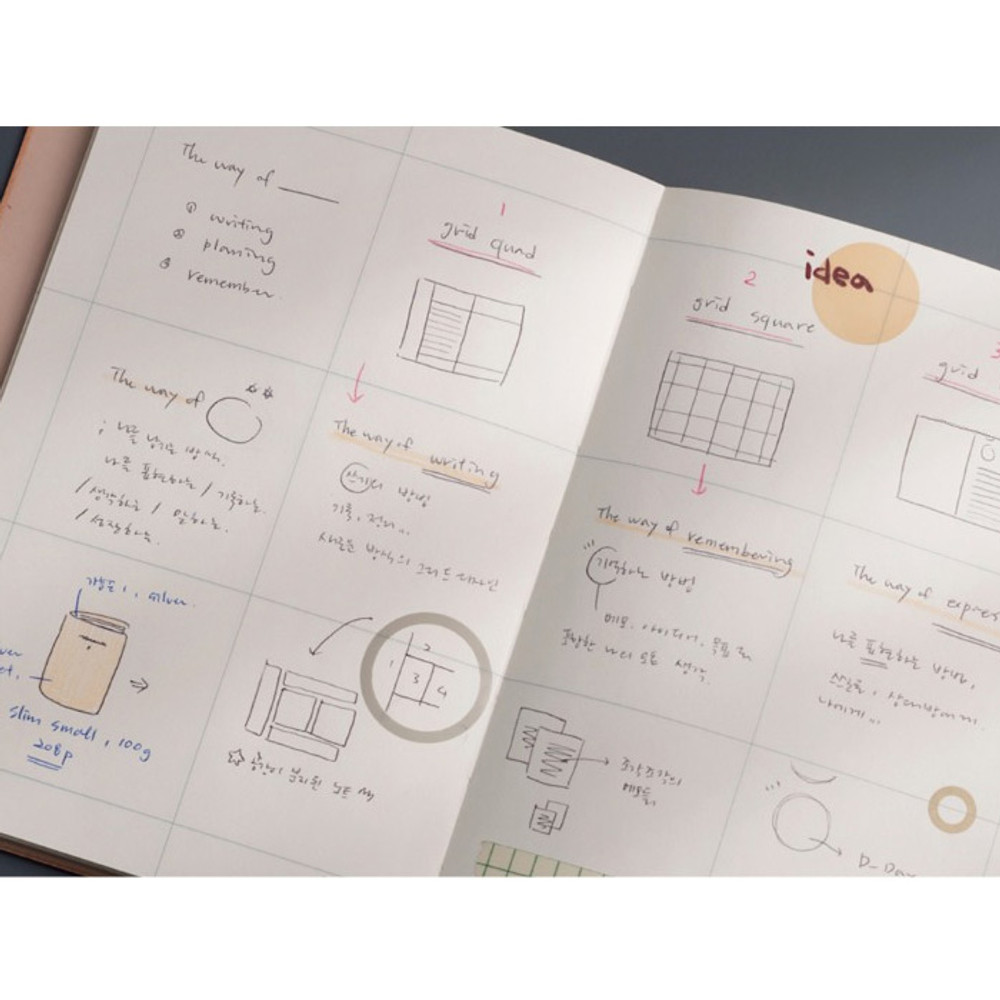 The way of
① writing
② planing
③ remember.
1
grid quad
The way of
나를 표현하는 / 기록하는.
/ 생각하는 / 말하는.
The way of writing
쓰기의 방법
기록, 정리...
새로운 방식의 그리드 디자인
silver.
slim small, 100g
208p
1 2
3 4
☆ 공간이 분리된 노트
idea
2
grid square
The way of remembering
기록하는 방법
메모, 아이디어, 목표 등
다양한 나의 모든 생각.
조각조각의
메모들,
3
grid
The way of expres
나를 표현하는 방법,
상대방에게
나에게...
D-Day